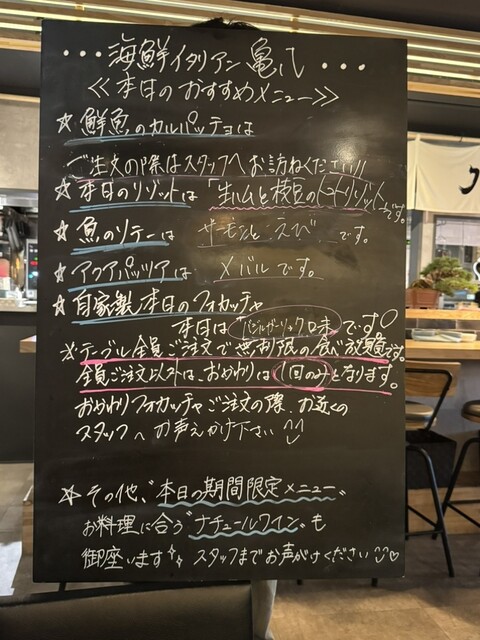 ・・・海鮮イタリアン亀八・・・
≪本日のおすすめメニュー≫
☆鮮魚のカルパッチョは
ご注文の際はスタッフへお訪ねください!!
☆本日のリゾットは「生ハムと枝豆のトマトリゾット」です。
☆魚のソテーは サーモンと えび です。
☆アクアパッツアは メバルです。
☆自家製本日のフォカッチャ
本日は「バジルガーリック味」です♡
※テーブル全員ご注文で無制限の食べ放題です。
全員ご注文以外は、おかわりは1回のみとなります。
おかわりフォカッチャご注文の際、お近くの
スタッフへお声えかけ下さい
☆その他、"本日の期間限定メニュー"
お料理に合う"ナチュールワイン"も
御座います スタッフまでお声がけください♡